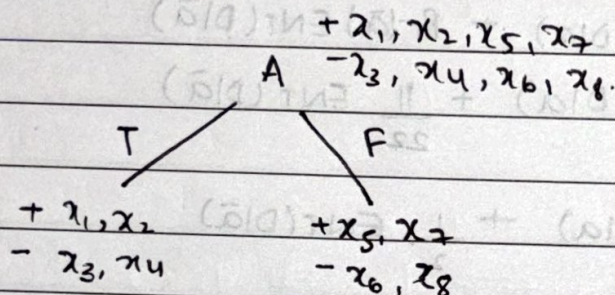 + x1, x2, x5, x7
A - x3, x4, x6, x8.
T F
+ x1, x2 +x5, x7
- x3, x4 - x6, x8